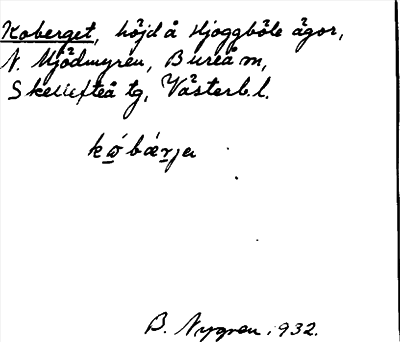 Koberget, höjd å Hjoggböle ägor,
N. Mjödmyren, Bureå m,
Skellefteå tg, Västerb.l.
kώ̲bærja
B. Nygren 1932.